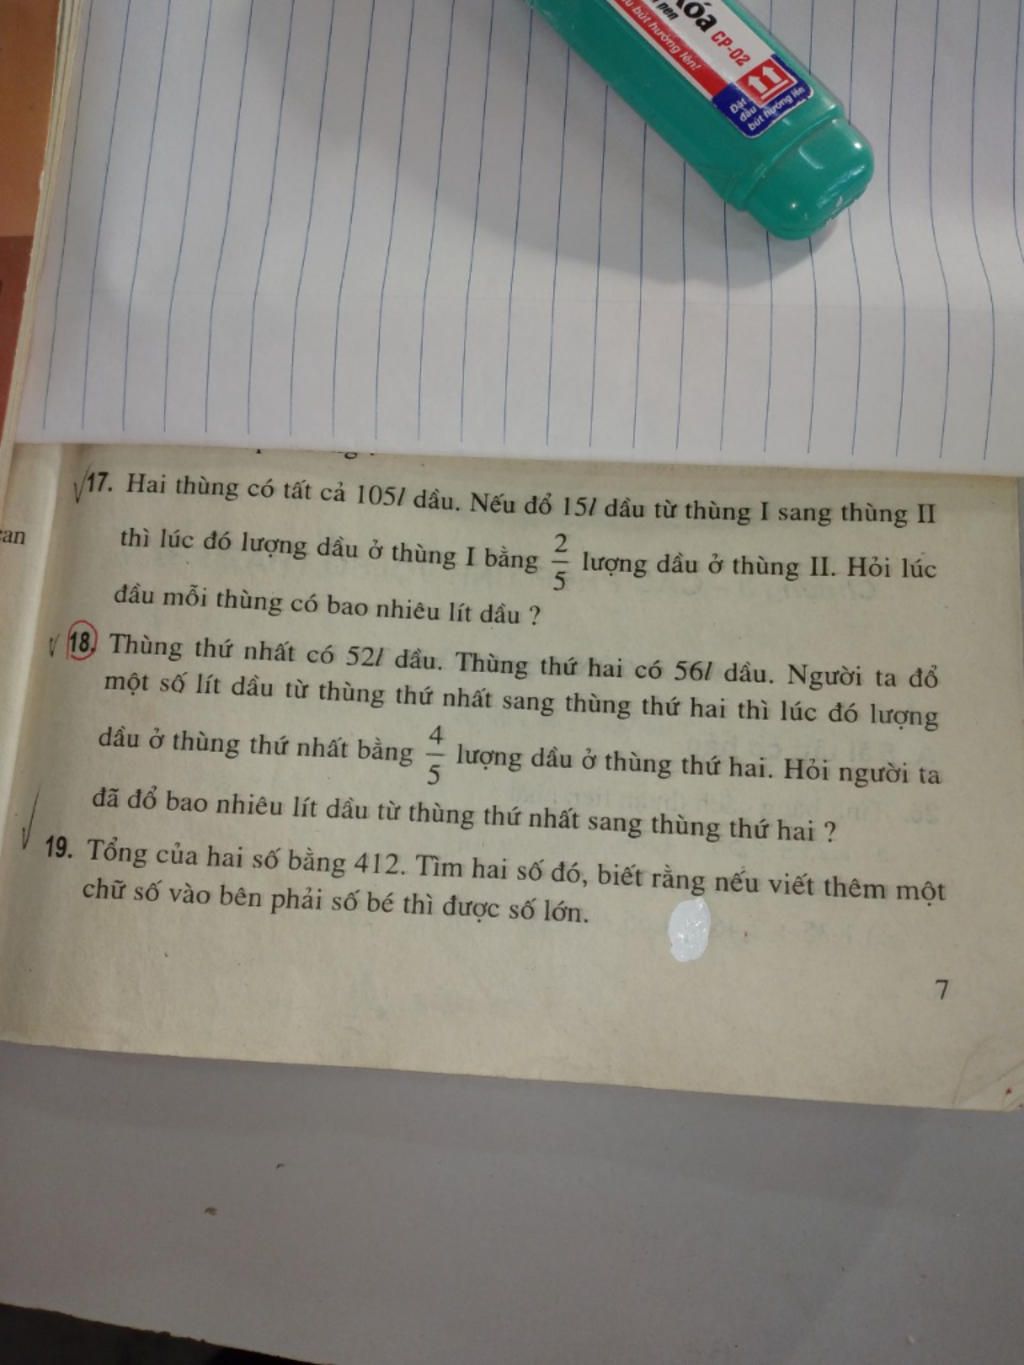 Xóa CP-02
bút hướng lên!
Đặt
đầu
bút hướng lên
17. Hai thùng có tất cả 105l dầu. Nếu đổ 15l dầu từ thùng I sang thùng II
thì lúc đó lượng dầu ở thùng I bằng 2/5 lượng dầu ở thùng II. Hỏi lúc
đầu mỗi thùng có bao nhiêu lít dầu ?
18. Thùng thứ nhất có 52l dầu. Thùng thứ hai có 56l dầu. Người ta đổ
một số lít dầu từ thùng thứ nhất sang thùng thứ hai thì lúc đó lượng
dầu ở thùng thứ nhất bằng 4/5 lượng dầu ở thùng thứ hai. Hỏi người ta
đã đổ bao nhiêu lít dầu từ thùng thứ nhất sang thùng thứ hai ?
19. Tổng của hai số bằng 412. Tìm hai số đó, biết rằng nếu viết thêm một
chữ số vào bên phải số bé thì được số lớn.
7